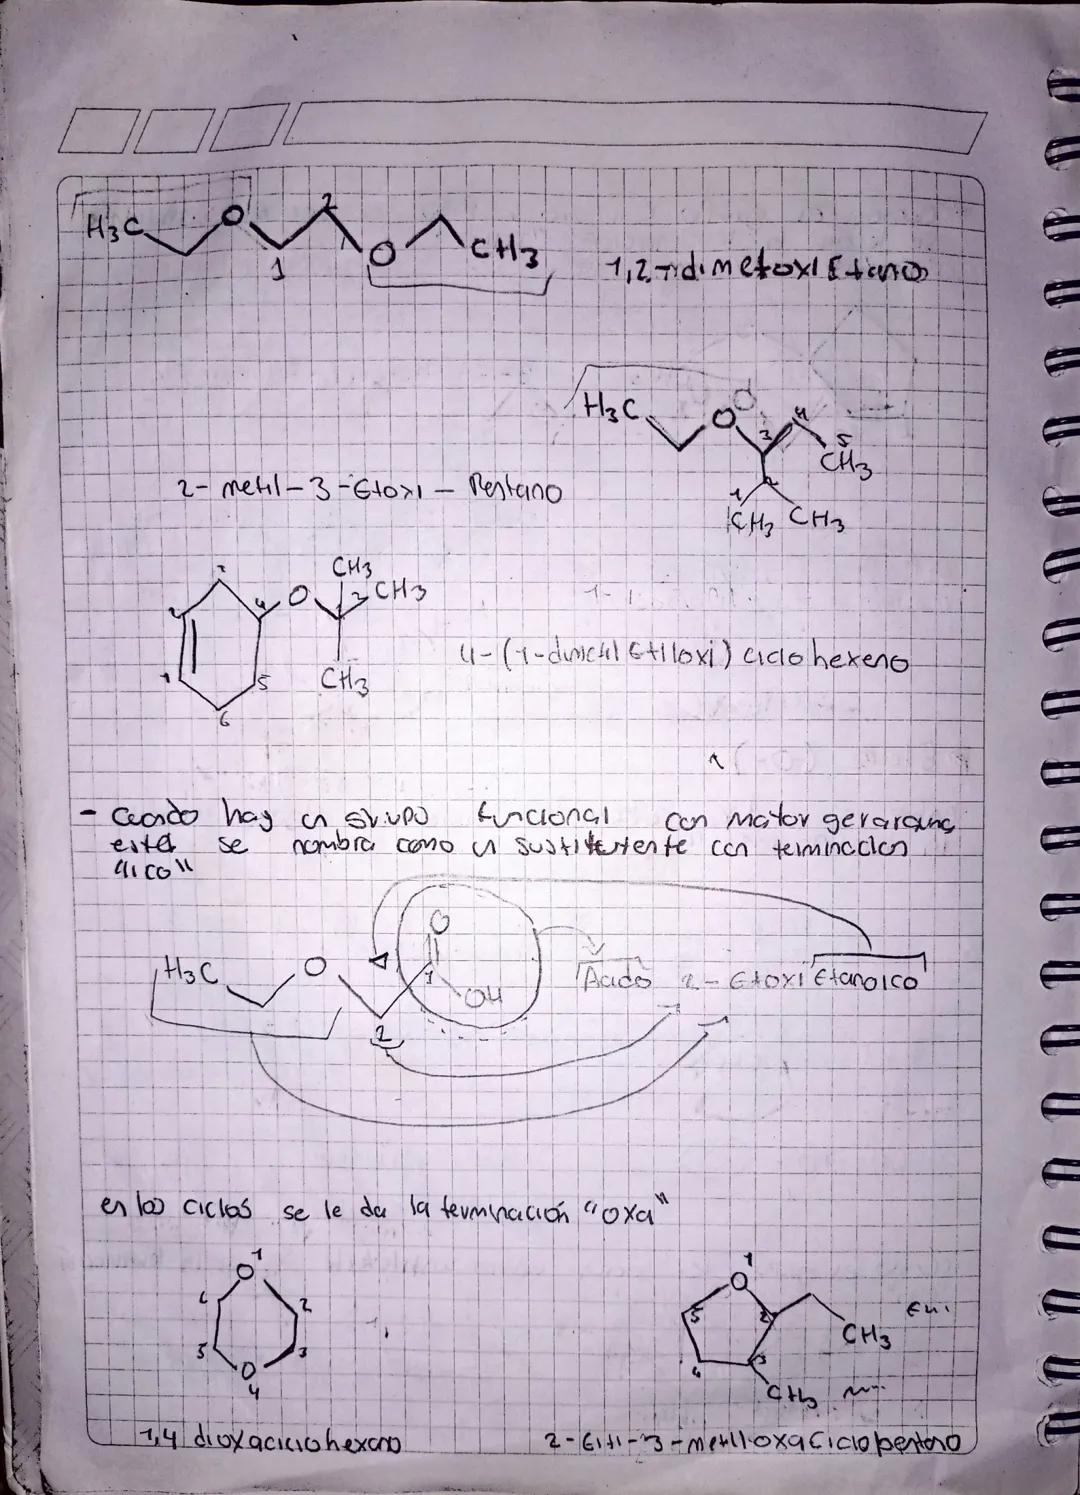 H3C O 1 2 O CH3
1,2-dimetoxi Etano
H3C O 3 4 5 CH3
2- metil-3-Etoxi- Pentano
1 2 CH3 CH3
CH3
O 2 CH3
4
CH3
1 5
6
4-(1-dimetil Etiloxi) ciclo hexeno
- Cuando hay un grupo funcional con mator gerarquia
este se nombra como un sustituyente con terminacion
"ico"
H3C O O 1 OH 2
Acido 2- Etoxi Etanoico
en los ciclos se le da la terminación "oxa"
O 1 2 3 O 4 5 6
O 1 2 3 4 5 CH3
CH3
1,4 dioxaciclohexano
2-Etil-3-metiloxaCiclopentano